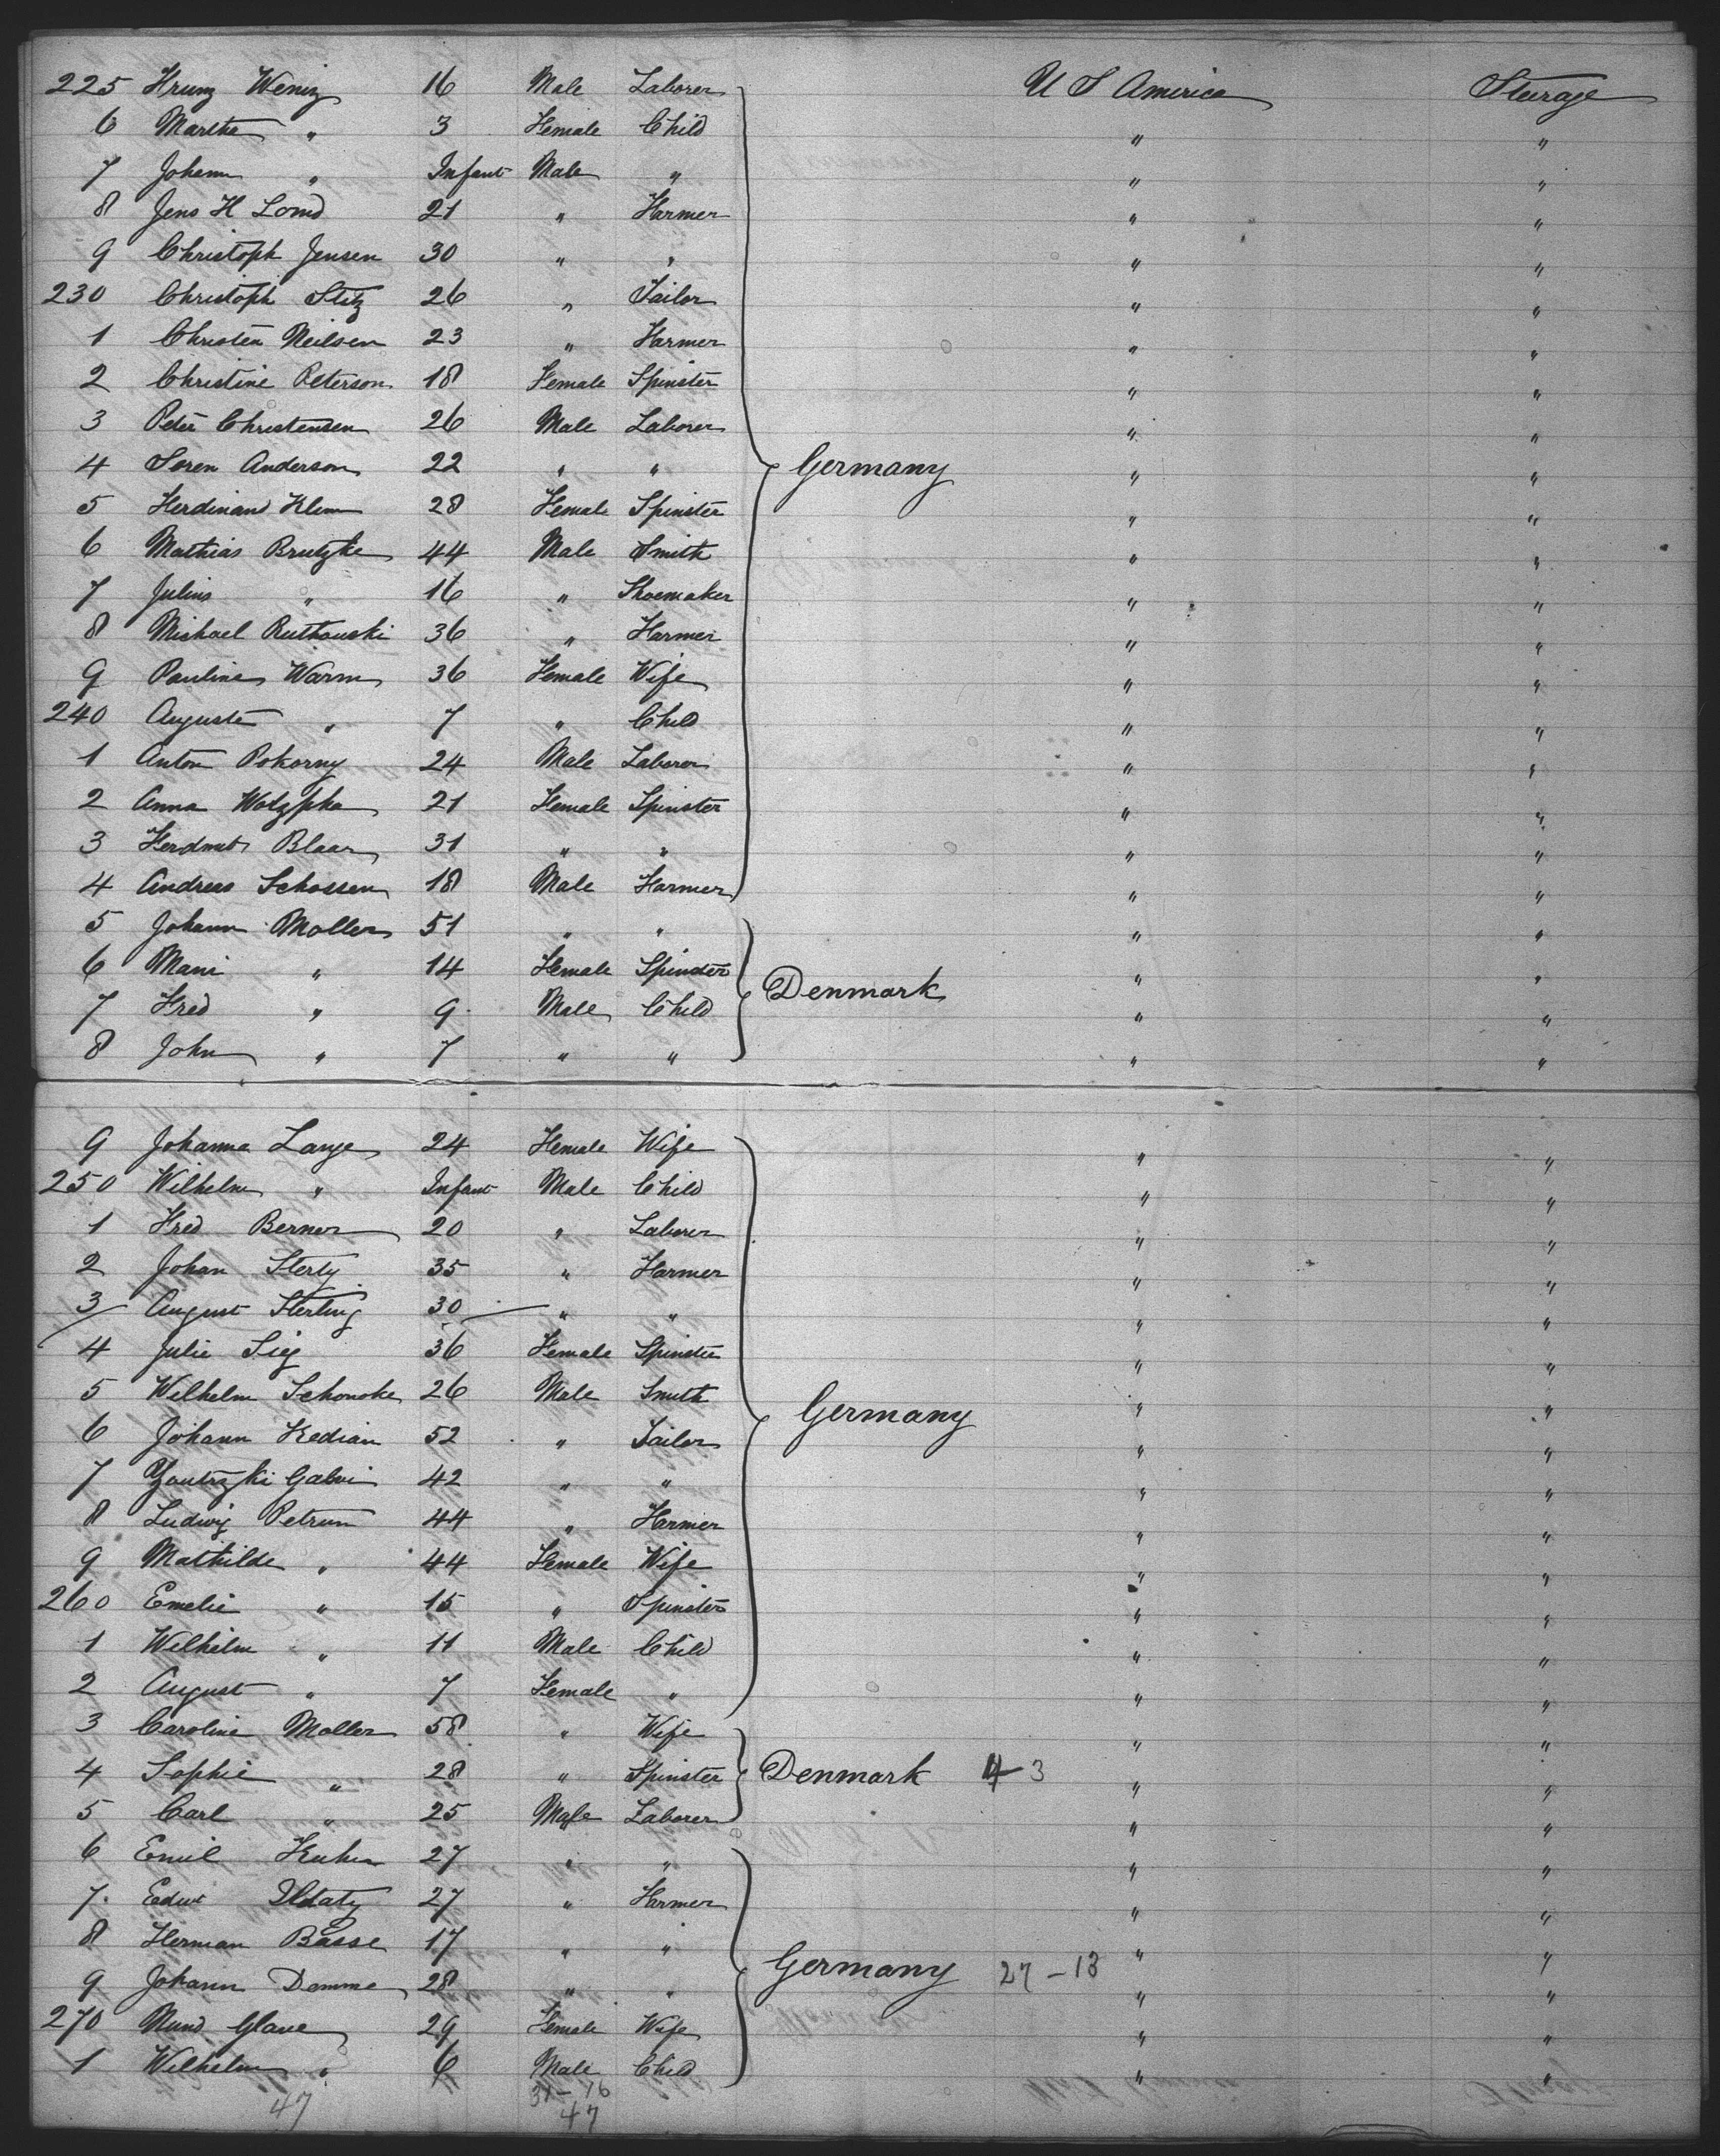 225 Hrung Weniz 16 Male Laborer U S America Steerage
6 Martha " 3 Female Child " "
7 Johann " Infant Male " " "
8 Jens H Lomd 21 " Farmer " "
9 Christoph Jensen 30 " " " "
230 Christoph Stitz 26 " Tailor " "
1 Christen Neilsen 23 " Farmer " "
2 Christine Peterson 18 Female Spinster " "
3 Peter Christensen 26 Male Laborer " "
4 Soren Anderson 22 " " Germany " "
5 Ferdinand Klem 28 Female Spinster " "
6 Mathias Brutzke 44 Male Smith " "
7 Julius " 16 " Shoemaker " "
8 Michael Rutkowski 36 " Farmer " "
9 Pauline Warm 36 Female Wife " "
240 Auguste " 7 " Child " "
1 Anton Pokorny 24 Male Laborer " "
2 Anna 21 Female Spinster " "
3 Blaar 31 " " " "
4 Andreas Schossen 18 Male Farmer " "
5 Johann Moller 51 " " " "
6 Mari " 14 Female Spinster Denmark " "
7 Fred " 9 Male Child " "
8 John " 7 " " " "
9 Johanna Lange 24 Female Wife " "
250 Wilhelm " Infant Male Child " "
1 Fred Berner 20 " Laborer " "
2 Johan Sterly 35 " Farmer " "
3 August Sterling 30 " " " "
4 Julie Sieg 36 Female Spinster " "
5 Wilhelm Schonoke 26 Male Smith Germany " "
6 Johann Kedian 52 " Tailor " "
7 Galvi 42 " " " "
8 Ludwig Petrum 44 " Farmer " "
9 Mathilde " 44 Female Wife " "
260 Emelie " 15 " Spinster " "
1 Wilhelm " 11 Male Child " "
2 August " 7 Female " " "
3 Caroline Moller 58 " Wife " "
4 Sophie " 28 " Spinster Denmark 4 3 " "
5 Carl " 25 Male Laborer " "
6 Emil Kuhn 27 " " " "
7 Edwi 27 " Farmer " "
8 Herman Basse 17 " " " "
9 Johann Demme 28 " " Germany 27 - 13 " "
270 Mund Glaue 29 Female Wife " "
1 Wilhelm " 6 Male Child " "
47 31 - 16
47